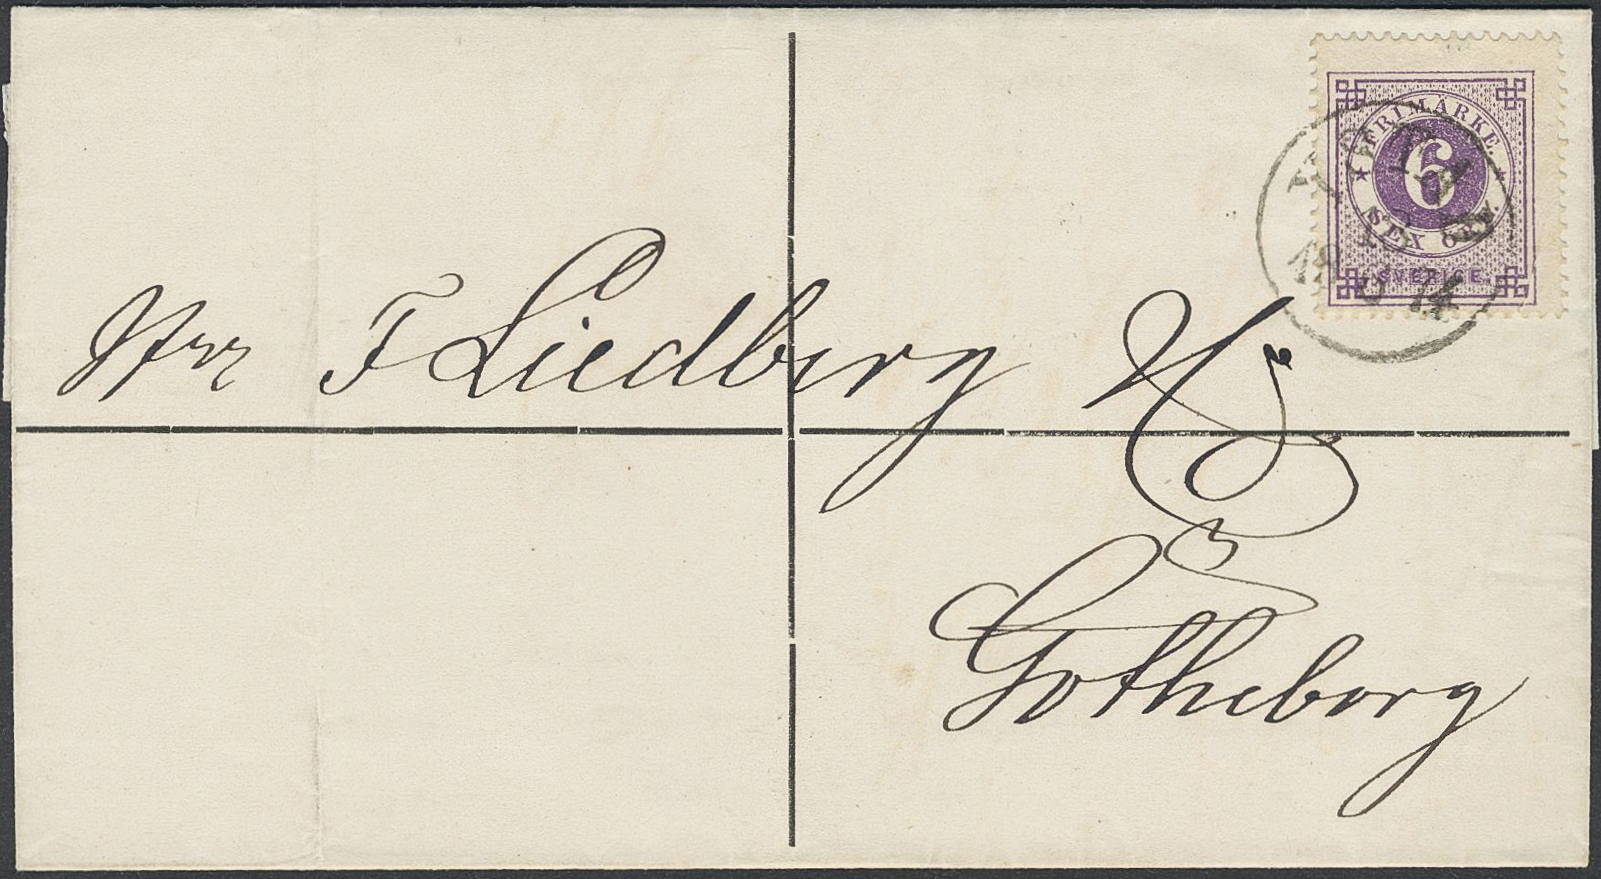 FRIMÄRKE.
6
SEX ÖRE.
SVERIGE.
Herr F Liedberg
Gotheborg